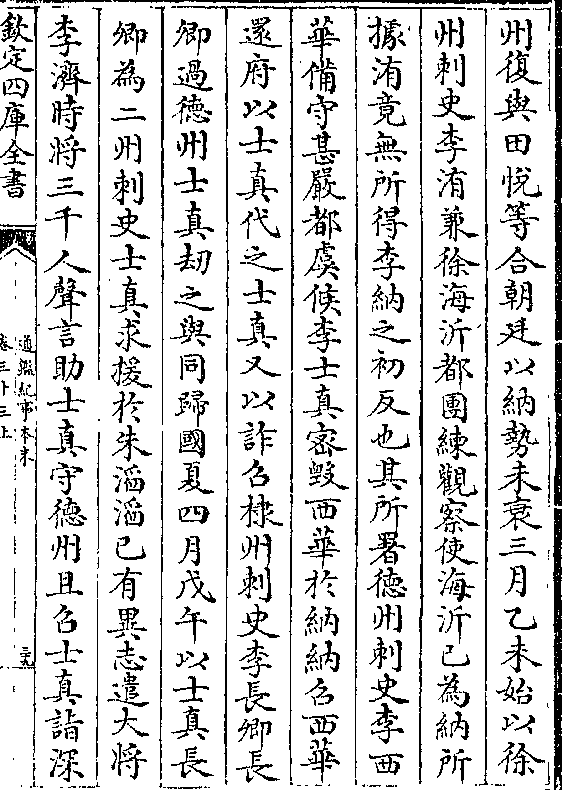 州復與田悅等合朝廷以納勢未衰三月乙未始以徐
州刺史李洧兼徐海沂都團練觀察使海沂已為納所
據洧竟無所得李納之初反也其所署德州刺史李西
華備守甚嚴都虞候李士真密毀西華於納納召西華
還府以士真代之士真又以詐召棣州刺史李長卿長
卿過德州士真劫之與同歸國夏四月戊午以士真長
卿為二州刺史士真求援於朱滔滔已有異志遣大將
李濟時將三千人聲言助士真守德州且召士真詣深
欽定四庫全書
通鑑紀事本末
卷三十三上
三九